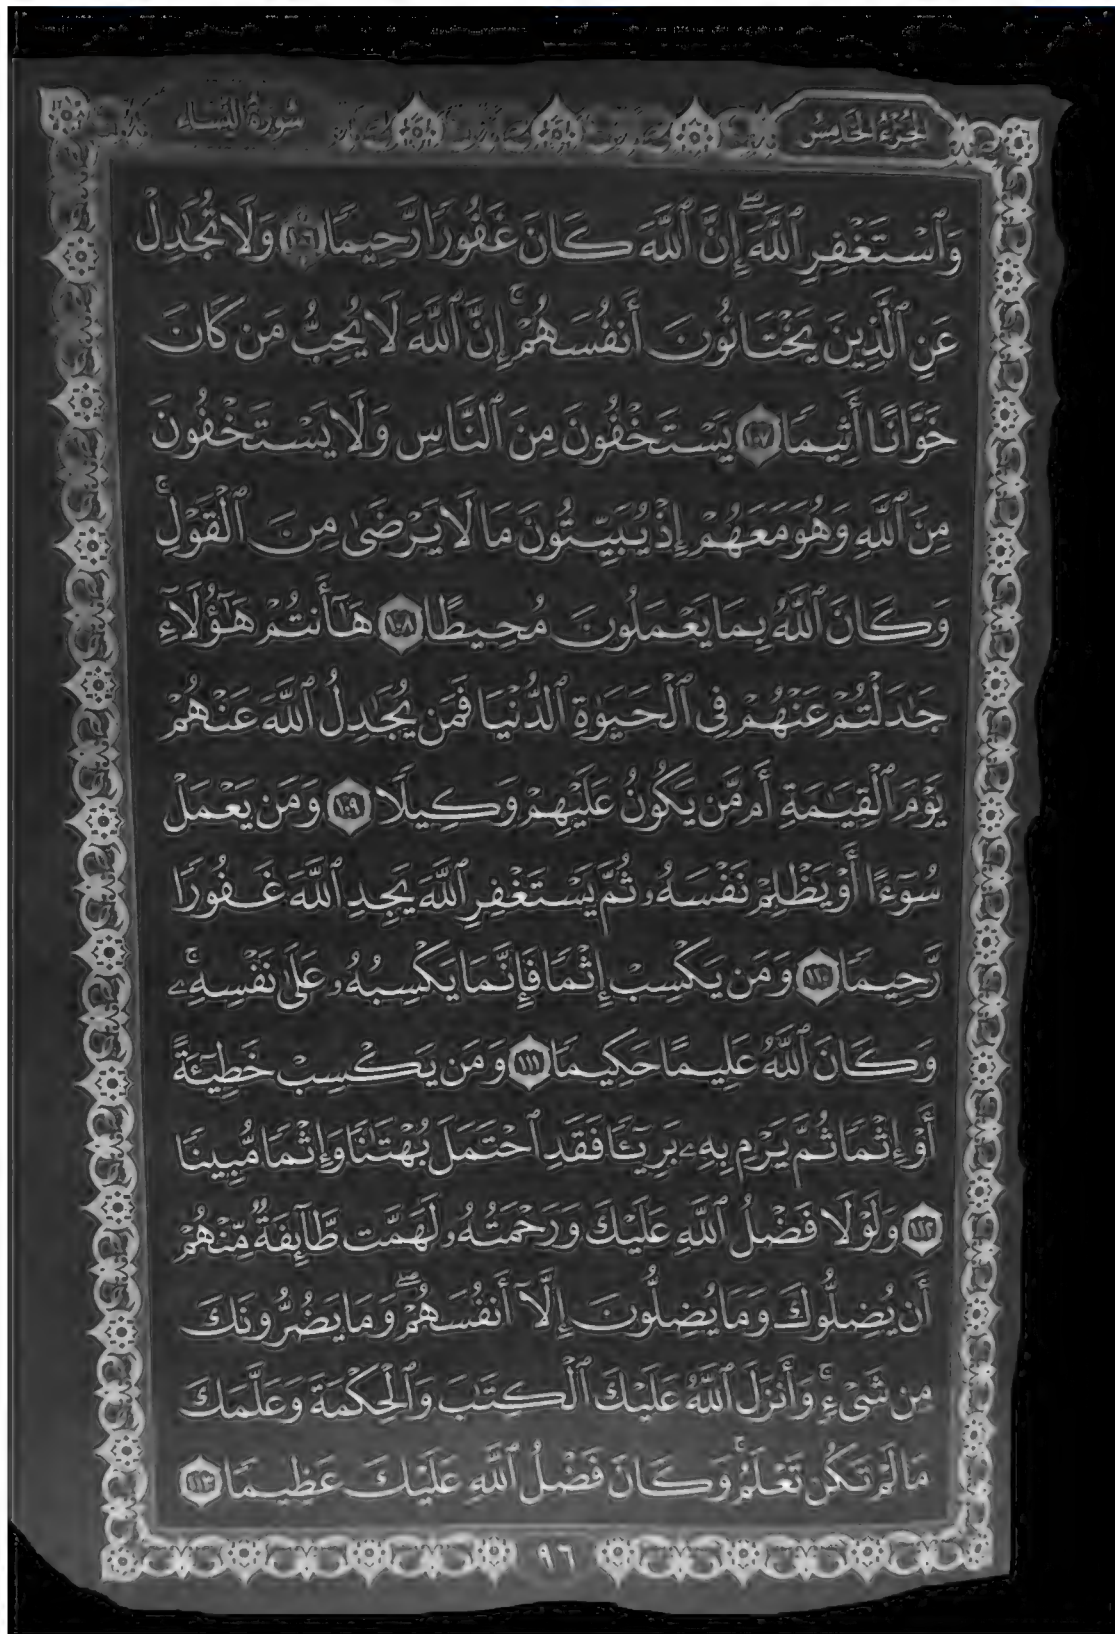 الجُزْءُ الخَامِسُ
سُورَةُ النِّسَاء
وَٱسْتَغْفِرِ ٱللَّهَۖ إِنَّ ٱللَّهَ كَانَ غَفُورًا رَّحِيمًا ١٠٦ وَلَا تُجَٰدِلْ
عَنِ ٱلَّذِينَ يَخْتَانُونَ أَنفُسَهُمْۚ إِنَّ ٱللَّهَ لَا يُحِبُّ مَن كَانَ
خَوَّانًا أَثِيمًا ١٠٧ يَسْتَخْفُونَ مِنَ ٱلنَّاسِ وَلَا يَسْتَخْفُونَ
مِنَ ٱللَّهِ وَهُوَ مَعَهُمْ إِذْ يُبَيِّتُونَ مَا لَا يَرْضَىٰ مِنَ ٱلْقَوْلِۚ
وَكَانَ ٱللَّهُ بِمَا يَعْمَلُونَ مُحِيطًا ١٠٨ هَٰٓأَنتُمْ هَٰٓؤُلَآءِ
جَٰدَلْتُمْ عَنْهُمْ فِى ٱلْحَيَوٰةِ ٱلدُّنْيَا فَمَن يُجَٰدِلُ ٱللَّهَ عَنْهُمْ
يَوْمَ ٱلْقِيَٰمَةِ أَم مَّن يَكُونُ عَلَيْهِمْ وَكِيلًا ١٠٩ وَمَن يَعْمَلْ
سُوٓءًا أَوْ يَظْلِمْ نَفْسَهُۥ ثُمَّ يَسْتَغْفِرِ ٱللَّهَ يَجِدِ ٱللَّهَ غَفُورًا
رَّحِيمًا ١١٠ وَمَن يَكْسِبْ إِثْمًا فَإِنَّمَا يَكْسِبُهُۥ عَلَىٰ نَفْسِهِۦۚ
وَكَانَ ٱللَّهُ عَلِيمًا حَكِيمًا ١١١ وَمَن يَكْسِبْ خَطِيٓـَٔةً
أَوْ إِثْمًا ثُمَّ يَرْمِ بِهِۦ بَرِيٓـًٔا فَقَدِ ٱحْتَمَلَ بُهْتَٰنًا وَإِثْمًا مُّبِينًا
١١٢ وَلَوْلَا فَضْلُ ٱللَّهِ عَلَيْكَ وَرَحْمَتُهُۥ لَهَمَّت طَّآئِفَةٌ مِّنْهُمْ
أَن يُضِلُّوكَ وَمَا يُضِلُّونَ إِلَّآ أَنفُسَهُمْۖ وَمَا يَضُرُّونَكَ
مِن شَىْءٍۚ وَأَنزَلَ ٱللَّهُ عَلَيْكَ ٱلْكِتَٰبَ وَٱلْحِكْمَةَ وَعَلَّمَكَ
مَا لَمْ تَكُن تَعْلَمُۚ وَكَانَ فَضْلُ ٱللَّهِ عَلَيْكَ عَظِيمًا ١١٣
٩٦